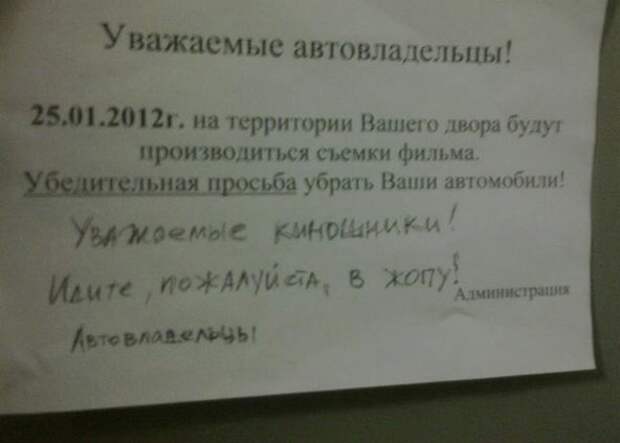 Уважаемые автовладельцы!
25.01.2012г. на территории Вашего двора будут
производиться съемки фильма.
Убедительная просьба убрать Ваши автомобили!
Уважаемые киношники!
Идите, пожалуйста, в жопу!
Администрация
Автовладельцы